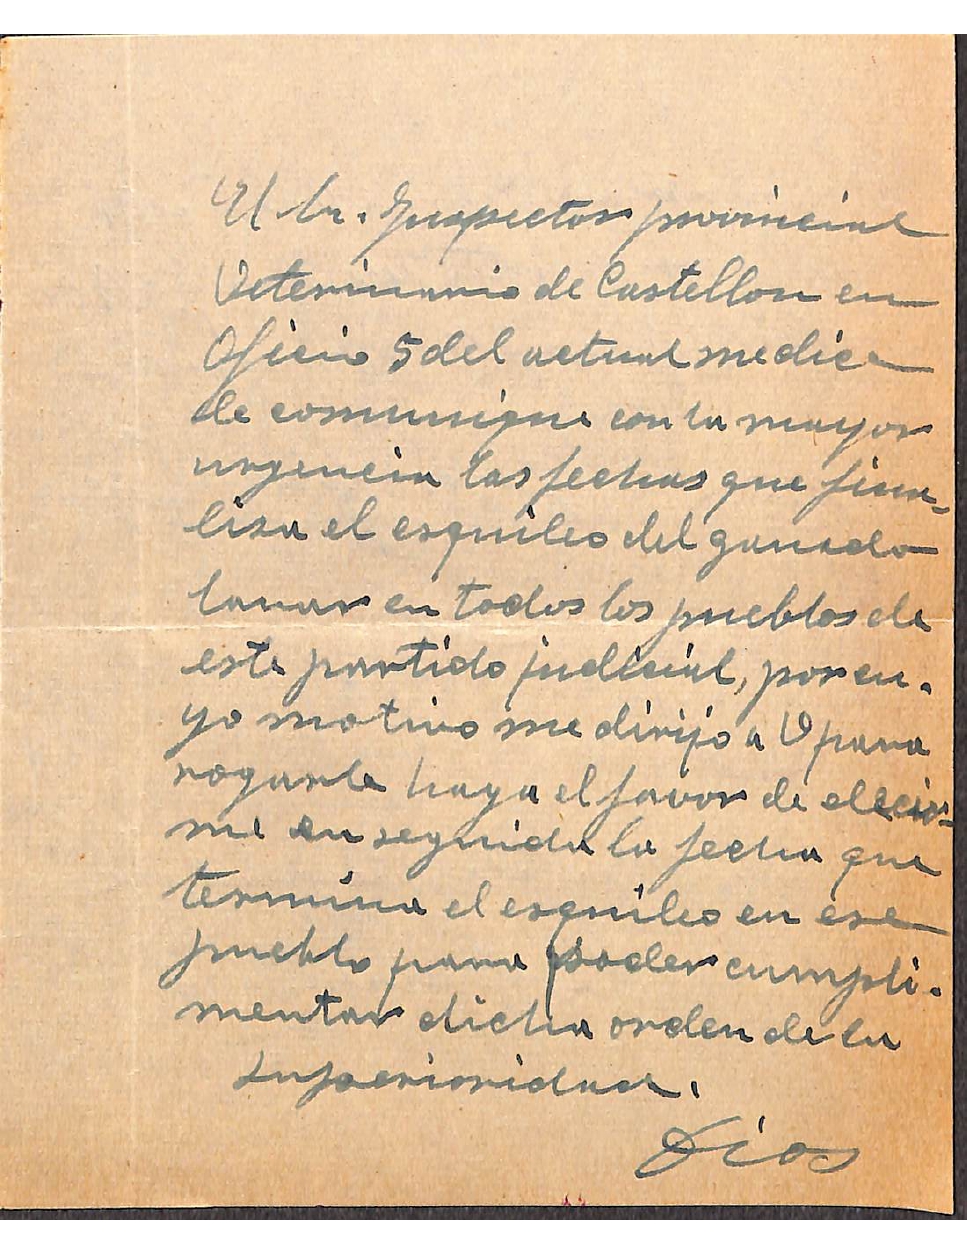 El Sr. Inspector provincial
Veterinario de Castellon en
Oficio 5 del actual me dice
le comunique con la mayor
urgencia las fechas que fina-
liza el esquileo del ganado
lanar en todos los pueblos de
este partido judicial, por cu-
yo motivo me dirijo a V para
rogarle haga el favor de decir-
me en seguida la fecha que
termina el esquileo en ese
pueblo para poder cumpli-
mentar dicha orden de la
superioridad.
Dios